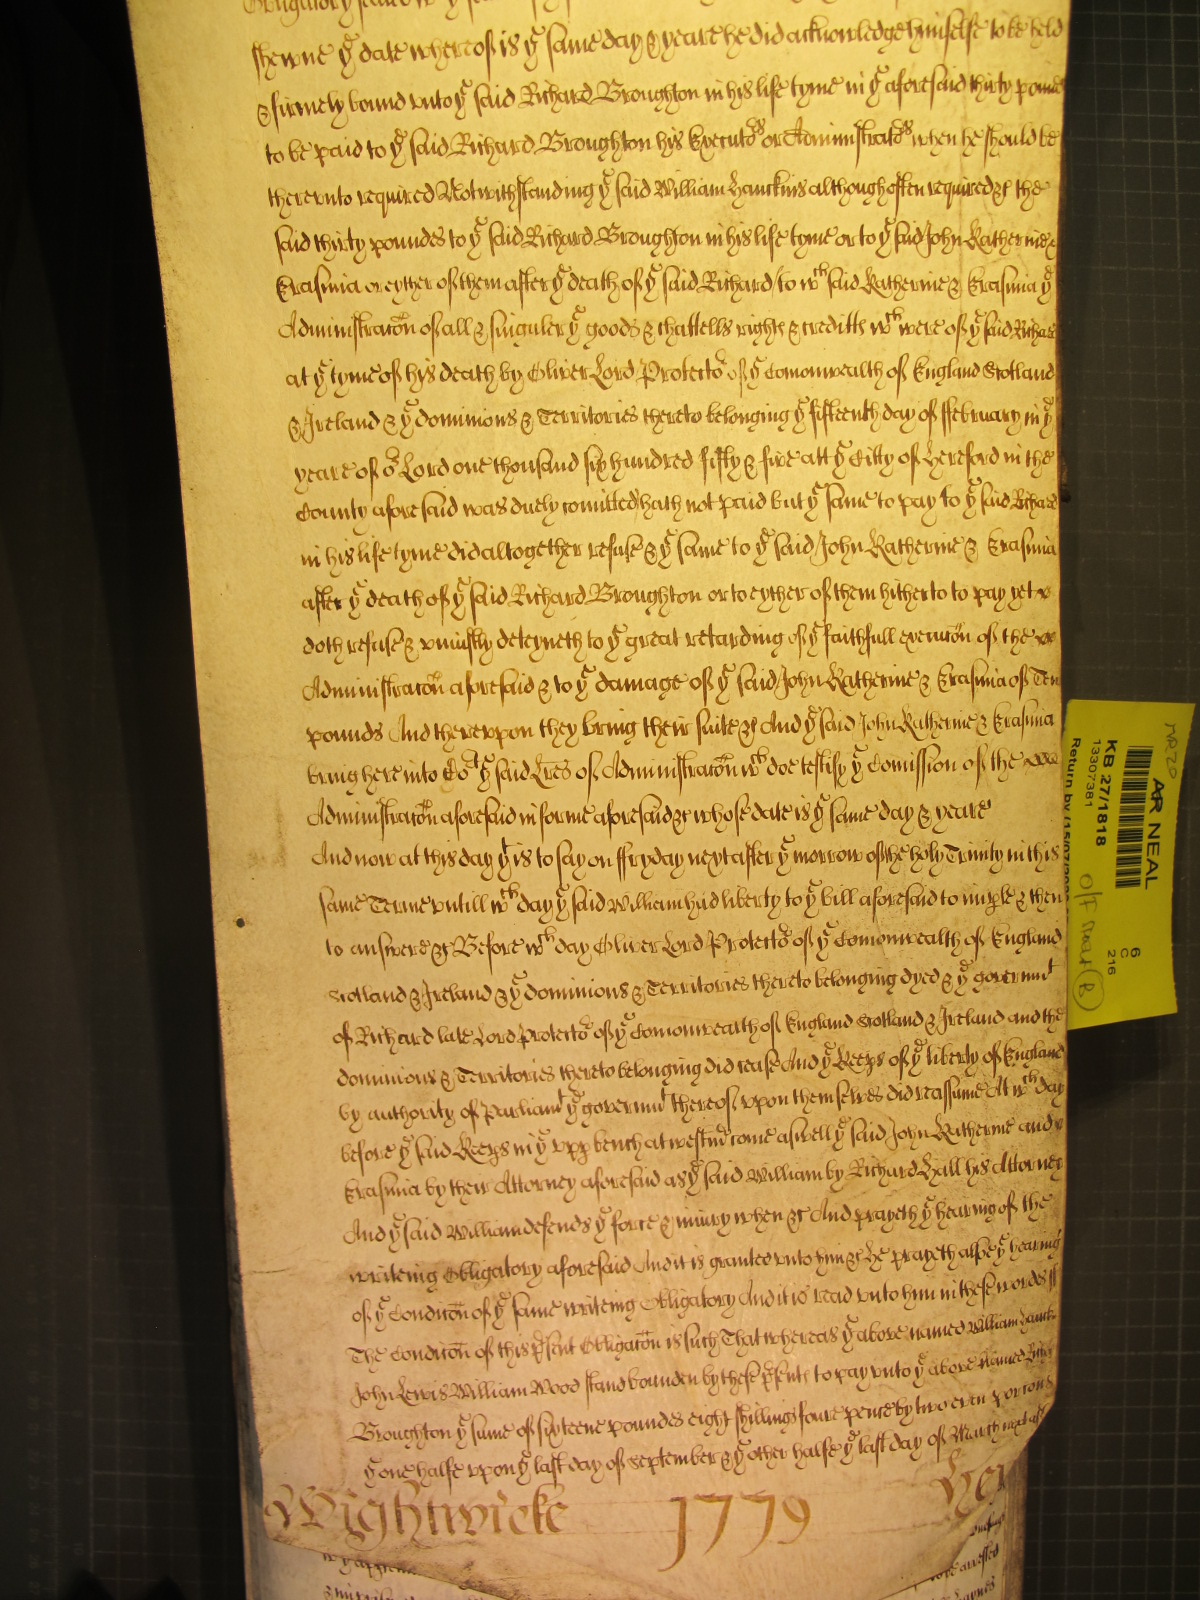 Obligatory
shewne yͤ date whereof is yͤ same day & yeare he did acknowledge himselfe to be held
& firmely bound vnto yͤ said Richard Broughton in his life tyme in yͤ aforesaid thirty pounds
to be paid to yͤ said Richard Broughton his Executoʳs or Administratoʳs when he should be
therevnto required Notwithstanding yͤ said William Hanckins although often required &c the
said thirty poundes to yͤ said Richard Broughton in his life tyme or to yͤ said John Katherine &
Erasmia or eyther of them after yͤ death of yͤ said Richard / to wᶜʰ said Katherine & Erasmia yͤ
Administracōn of all & singuler yͤ goods & chattells rights & creditts wᶜʰ were of yͤ said Richard
at yͤ tyme of his death by Oliver Lord Protectoʳ of yͤ Comonwealth of England Scotland
& Ireland & yͤ dominions & Territories thereto belonging yͤ fifteenth day of ffebruary in yͤ
yeare of oʳ Lord one thousand six hundred fifty & five att yͤ Citty of Hereford in the
County aforesaid was duely comitted / hath not paid but yͤ same to pay to yͤ said Richard
in his life tyme did altogether refuse & yͤ same to yͤ said John Katherine & Erasmia
after yͤ death of yͤ said Richard Broughton or to eyther of them hitherto to pay yet
doth refuse & vniustly deteyneth to yͤ great retarding of yͤ faithfull execucōn of the
Administracōn aforesaid & to yͤ damage of yͤ said John Katherine & Erasmia of Ten
pounds And therevpon they bring their suite &c And yͤ said John Katherine & Erasmia
bring here into Coʳᵗ yͤ said Lres of Administracōn wᶜʰ doe testify yͤ Comission of the
Administracōn aforesaid in forme aforesaid &c whose date is yͤ same day & yeare
And now at this day yᵗ is to say on ffryday next after yͤ morrow of the holy Trinity in this
same Terme vntill wᶜʰ day yͤ said William had liberty to yͤ bill aforesaid to imple & then
to answere &c Before wᶜʰ day Oliver Lord Protectoʳ of yͤ Comonwealth of England
Scotland & Ireland & yͤ dominions & Territories thereto belonging dyed & yͤ governmᵗ
of Richard late Lord Protectoʳ of yͤ Comonwealth of England Scotland & Ireland and the
dominions & Territories thereto belonging did cease And yͤ Keeps of yͤ liberty of England
by authority of Parliamᵗ yͤ governmᵗ thereof vpon themselves did reassume At wᶜʰ day
before yͤ said Keeps in yͤ vpp bench at westmʳ come aswell yͤ said John Katherine and
Erasmia by their Attorney aforesaid as yͤ said William by Richard Hall his Attorney
And yͤ said William defends yͤ force & iniury when &c And prayeth yͤ hearing of the
writeing Obligatory aforesaid And it is granted vnto him &c He prayeth alsoe yͤ hearing
of yͤ Condicōn of yͤ same writeing Obligatory And it is read vnto him in these wordes ss
The Condicōn of this pͬsent Obligacōn is such That whereas yͤ above named William Hanck
John Lewis William Wood stand bounden by these pͬsents to pay vnto yͤ above named Rich
Broughton yͤ sume of sixteene poundes eight shillings foure pence by two even porcons
yͤ one halfe vpon yͤ last day of September & yͤ other halfe yͤ last day of March next
Wightwicke 1779 Her
AR NEAL
KB 27/1818
13307381
Return by
6
C
216